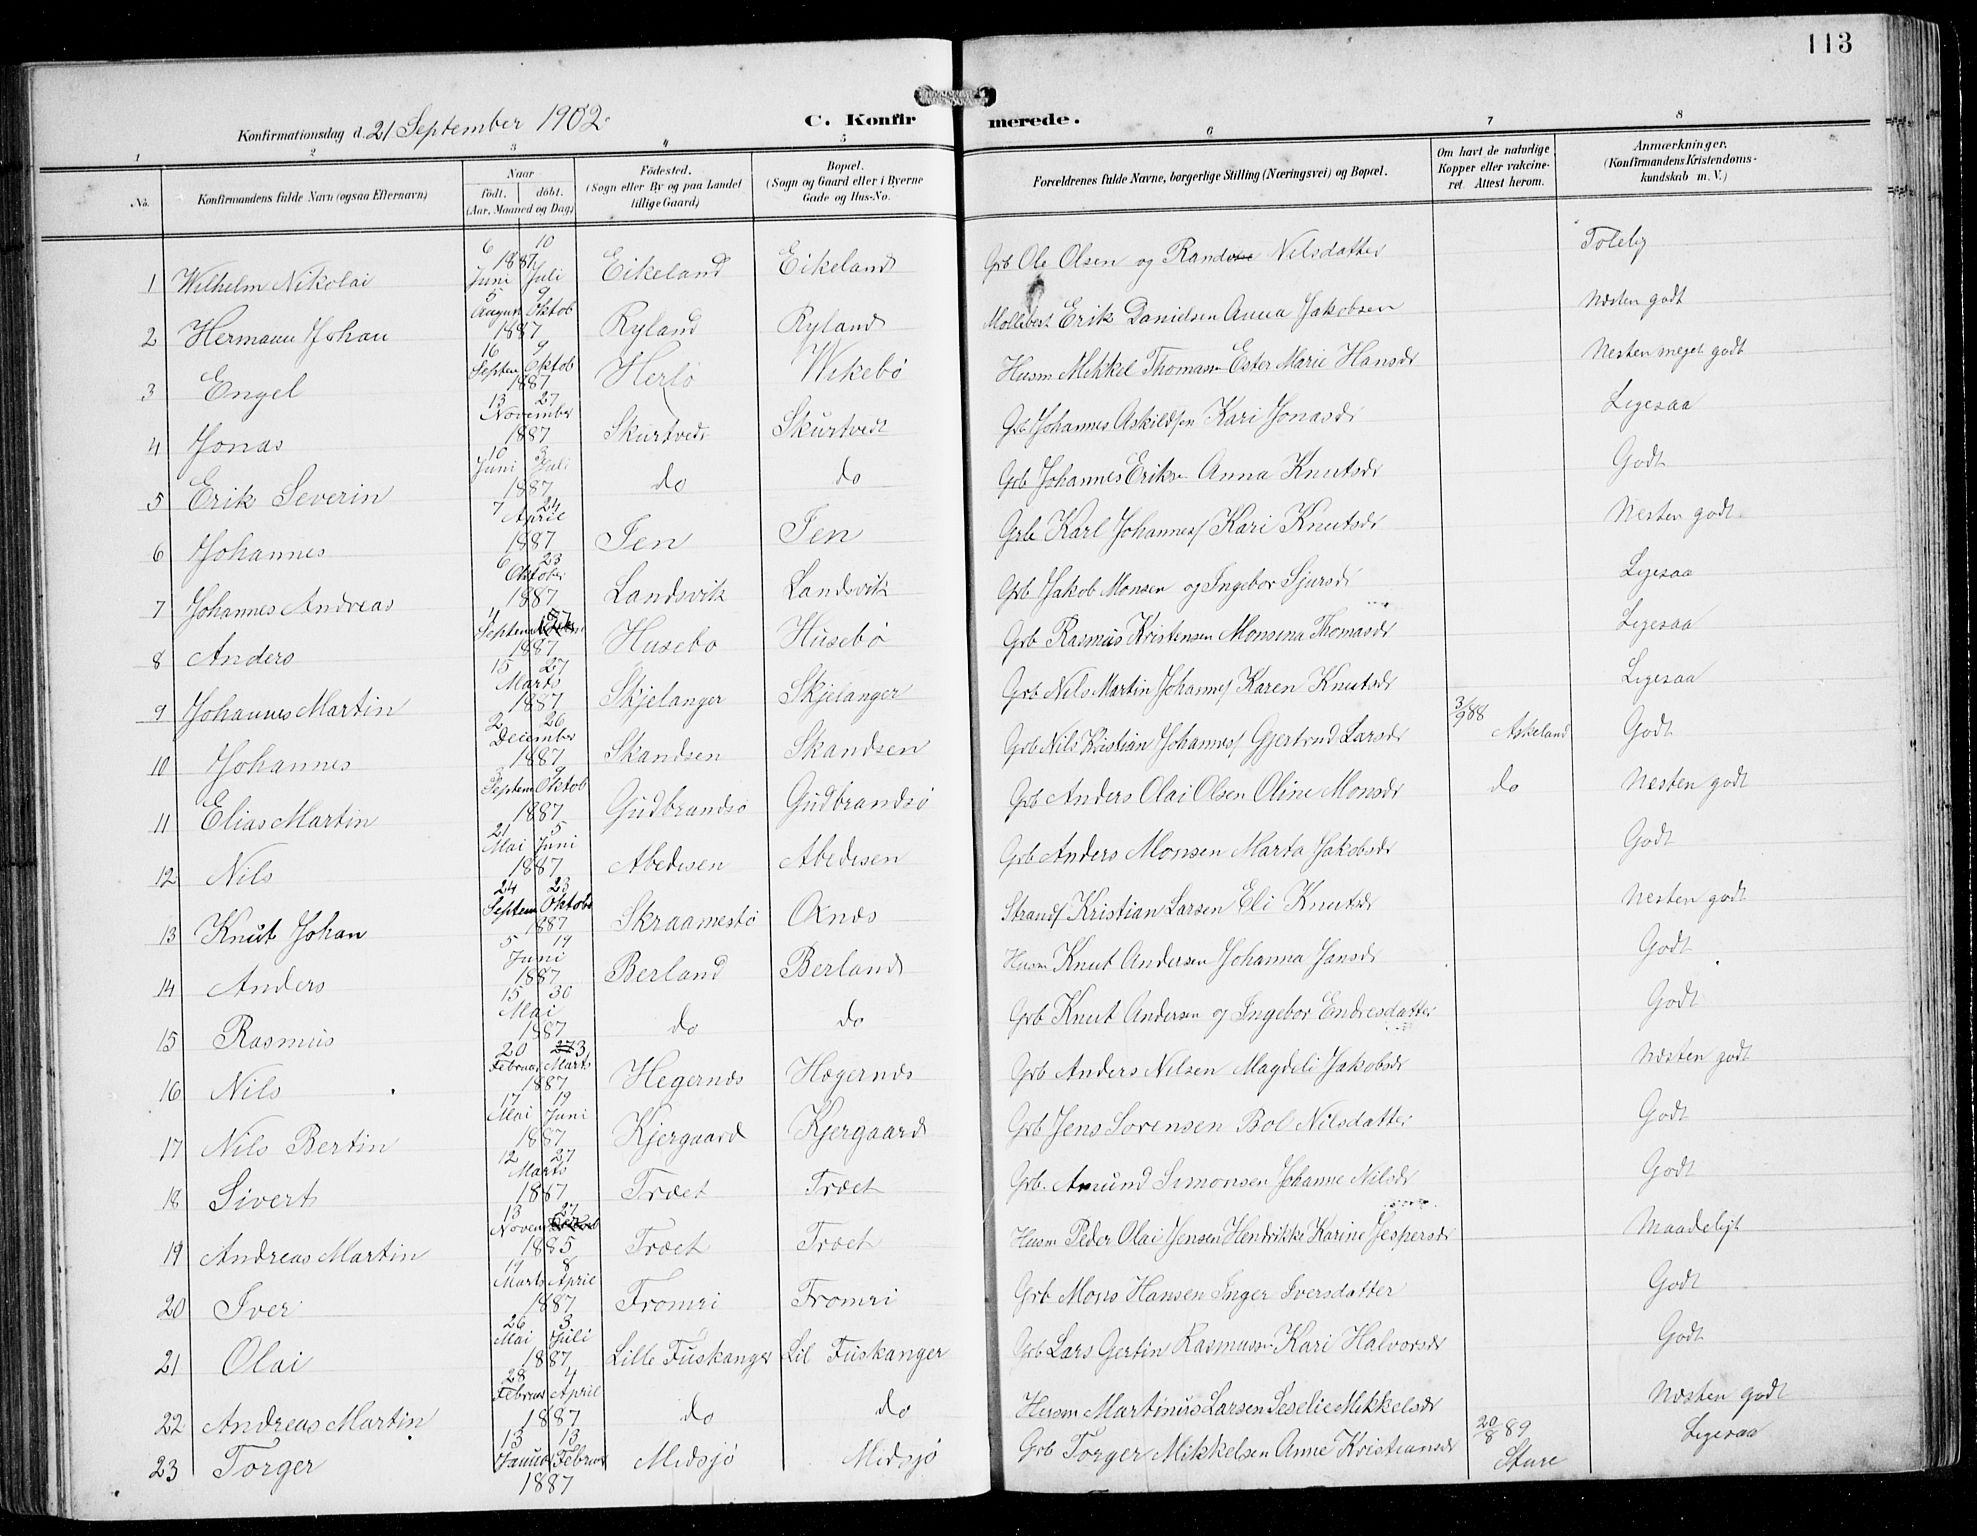 113
Konfirmationsdag d. 21 September 1902. C. Konfirmerede.
1 2 3 4 5 6 7 8
No. Konfirmandens fulde Navn (ogsaa Efternavn) Naar født. døbt. (Aar, Maaned og Dag) Fødested. (Sogn eller By og paa Landet tillige Gaard) Bopæl. (Sogn og Gaard eller i Byerne Gade og Hus-No. Forældrenes fulde Navne, borgerlige Stilling (Næringsvei) og Bopæl. Om havt de naturlige Kopper eller vakcineret. Attest herom. Anmærkninger. (Konfirmandens Kristendomskundskab m. V.)
1 Wilhelm Nikolai 6 Juni 10 Juli 1887 Eikeland Eikeland Grb Ole Olsen og Nilsdatter Tolelig
2 Hermann Johan 5 August 9 Oktob 1887 Ryland Ryland Erik Danielsen Anna Jakobsen Næsten godt
3 Engel 16 Septem 9 Oktob 1887 Herlö Wikebö Husm Mikkel Thomasn Ester Marie Hansdr Nesten meget godt
4 Jonas 13 27 November 1887 Skurtvedt Skurtvedt Grb Johannes Askildsen Kari Jonasdr Ligesaa
5 Erik Severin 10 Juni 3 Juli 1887 do do Grb Johannes Eriksn Anna Knutsdr Godt
6 Johannes 7 24 April 1887 Grb Karl Johannes Kari Knutsdr Nesten godt
7 Johannes Andreas 6 23 Oktober 1887 Landsvik Landsvik Grb Jakob Monsen og Ingebor Sjursdr Ligesaa
8 Anders 4 Septem 1887 Husebö Husebö Grb Rasmus Kristensen Monsina Thomasdr Ligesaa
9 Johannes Martin 15 27 Marts 1887 Skjelanger Skjelanger Grb Nils Martin Johannes Karen Knutsdr Ligesaa
10 Johannes 2 26 December 1887 Skandsen Skandsen Grb Nils Kristian Johannes Gjertrud Larsdr 3/9 88 Askeland Godt
11 Elias Martin Septem 9 Oktob 1887 Gudbrandsö Gudbrandsö Grb Anders Olai Olsen Oline Monsdr do Nesten godt
12 Nils 21 Mai 5 Juni 1887 Abedesen Abedesen Grb Anders Monsen Marta Jakobsdr Godt
13 Knut Johan 24 Septem 23 Oktobr 1887 Skraamestö Oxnæs Strands Kristian Larsen Eli Knutsdr Nesten godt
14 Anders 5 19 Juni 1887 Berland Berland Husm Knut Andersen Johanna Jansdr Godt
15 Rasmus 15 30 Mai 1887 do do Grb Knut Andersen og Ingebor Endresdatter Godt
16 Nils 20 Februar 3 Marts 1887 Hegernæs Hægernæs Grb Anders Nilsen Magdeli Jakobsdr Næsten godt
17 Nils Bertin 17 Mai 19 Juni 1887 Kjergaard Kjergaard Grb Jens Sorensen Bol Nilsdatter Godt
18 Sivert 12 27 Marts 1887 Træet Træet Grb. Amund Simonsen Johanne Nilsdr Godt
19 Andreas Martin 13 27 Novem 1885 Træet Træet Husm Peder Olai Jensen Hendrikke Karine Jespersdr Maadeligt
20 Iver 19 Marts 8 April 1887 Fromri Fromri Grb Mons Hansen Inger Iversdatter Godt
21 Olai 26 Mai 3 Juli 1887 Lille Fuskanger Lil Fuskanger Grb Lars Gertin Rasmussn Kari Halvorsdr Godt
22 Andreas Martin 28 Februar 4 April 1887 do do Husm Martinus Larsen Seselie Mikkelsdr Næsten godt
23 Torger 13 Januar 13 Februar 1887 Midsjö Midsjö Grb Torger Mikkelsen Anne Kristiansdr 20/8 89 Sture Ligesaa